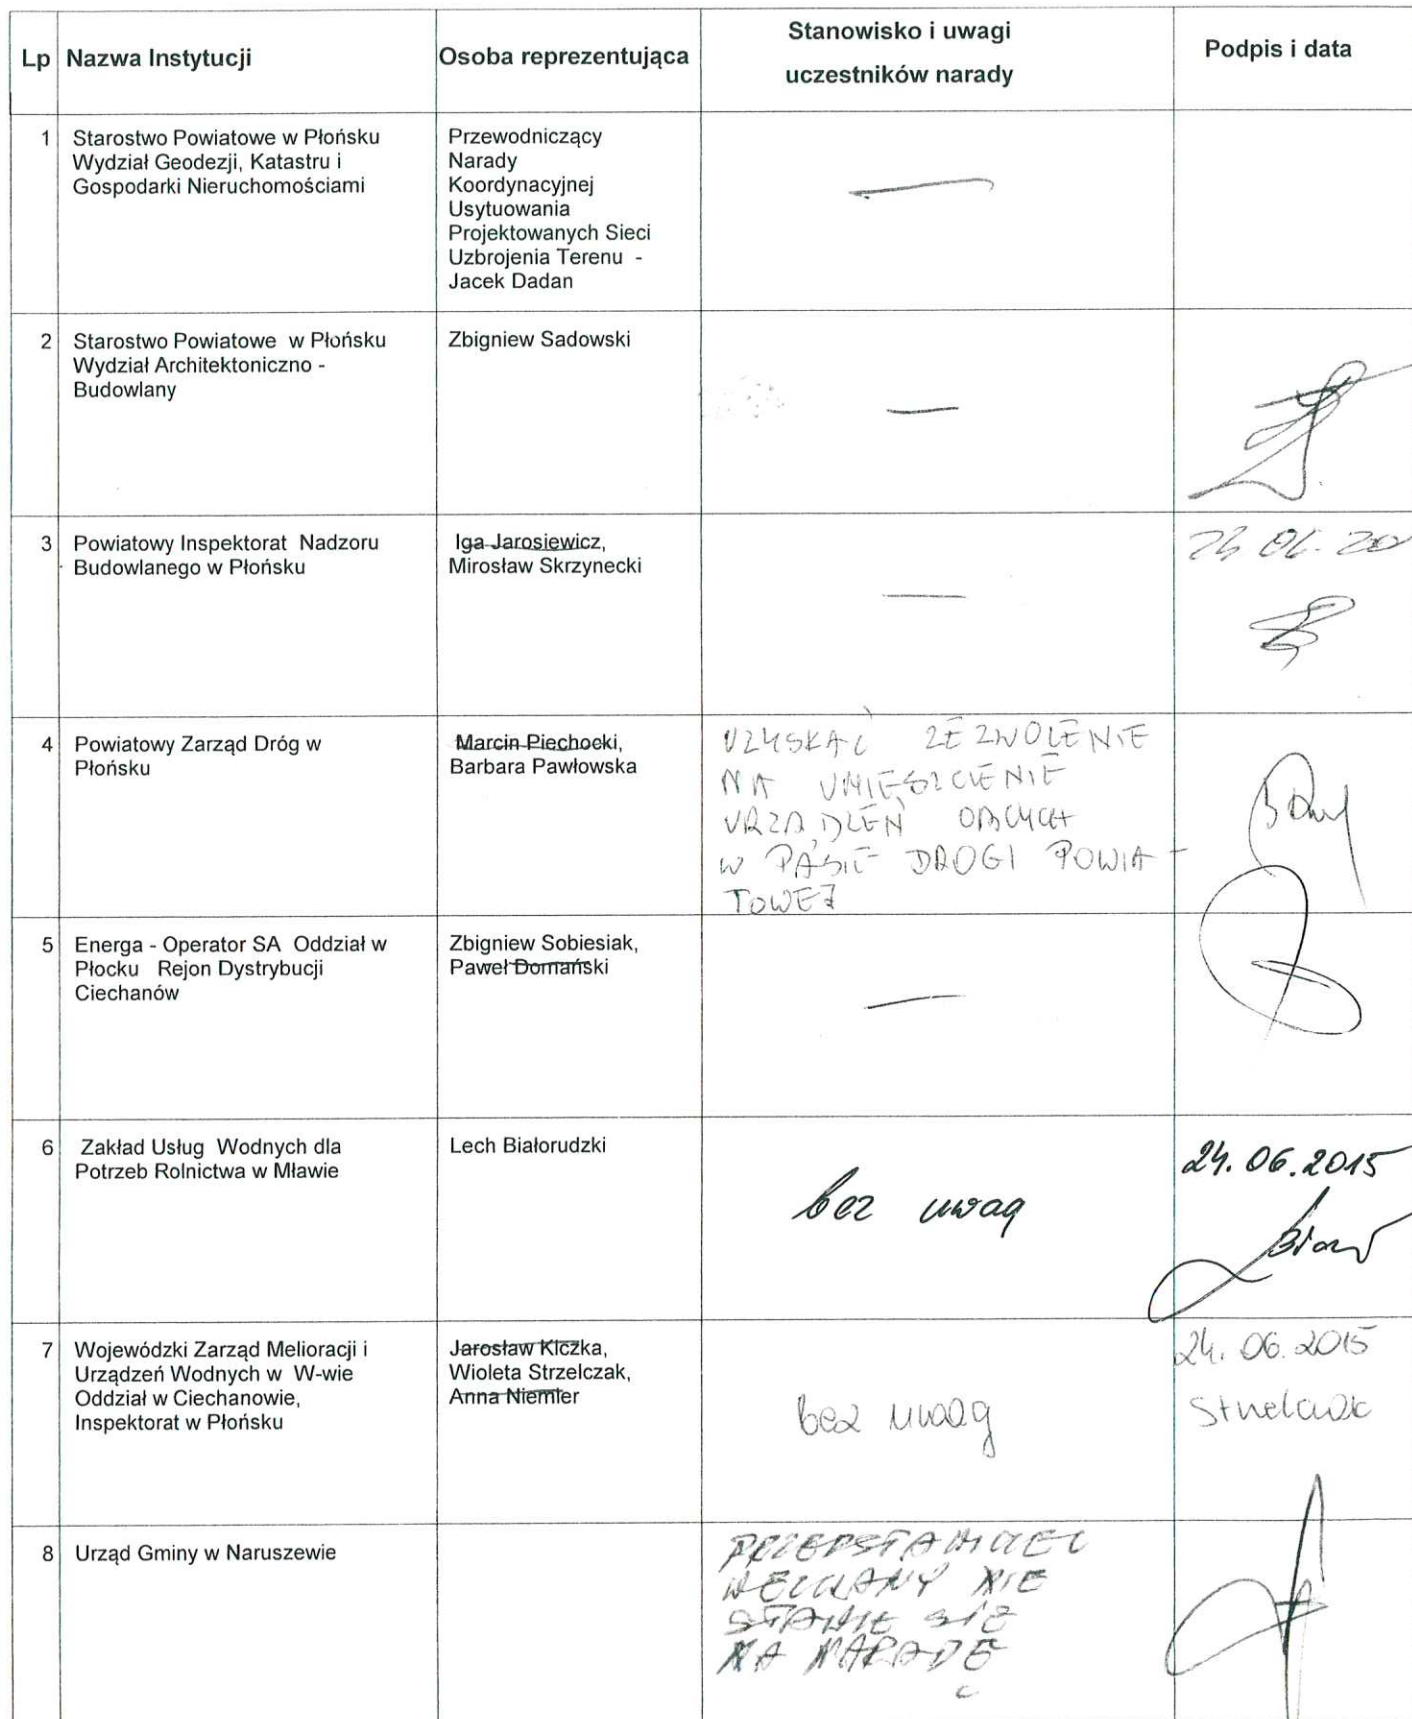 Lp Nazwa Instytucji Osoba reprezentująca Stanowisko i uwagi uczestników narady Podpis i data
1 Starostwo Powiatowe w Płońsku
Wydział Geodezji, Katastru i
Gospodarki Nieruchomościami
Przewodniczący
Narady
Koordynacyjnej
Usytuowania
Projektowanych Sieci
Uzbrojenia Terenu -
Jacek Dadan
2 Starostwo Powiatowe w Płońsku
Wydział Architektoniczno -
Budowlany
Zbigniew Sadowski
3 Powiatowy Inspektorat Nadzoru
Budowlanego w Płońsku
Iga Jarosiewicz,
Mirosław Skrzynecki
4 Powiatowy Zarząd Dróg w
Płońsku
Marcin Piechocki,
Barbara Pawłowska
UZYSKAĆ ZEZWOLENIE
NA UMIESZCZENIE
URZĄDZEŃ OBCYCH
W PASIE DROGI POWIA-
TOWEJ
5 Energa - Operator SA Oddział w
Płocku Rejon Dystrybucji
Ciechanów
Zbigniew Sobiesiak,
Paweł Domański
6 Zakład Usług Wodnych dla
Potrzeb Rolnictwa w Mławie
Lech Białorudzki
bez uwag
24.06.2015
7 Wojewódzki Zarząd Melioracji i
Urządzeń Wodnych w W-wie
Oddział w Ciechanowie,
Inspektorat w Płońsku
Jarosław Kiczka,
Wioleta Strzelczak,
Anna Niemier
bez uwag
24.06.2015
Strzelczak
8 Urząd Gminy w Naruszewie
PRZEDSTAWICIEL
WEZWANY NIE
STAWIŁ SIĘ
NA NARADĘ